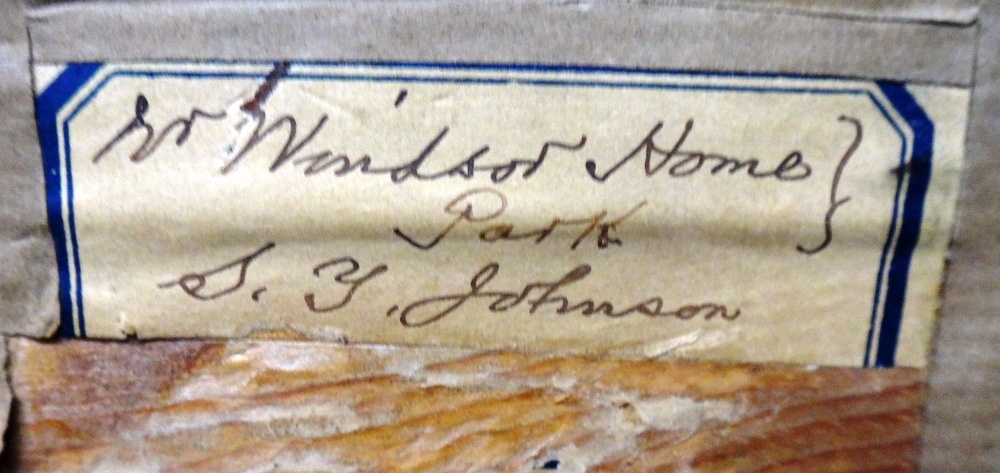 Nr Windsor Home }
Park
S. Y. Johnson